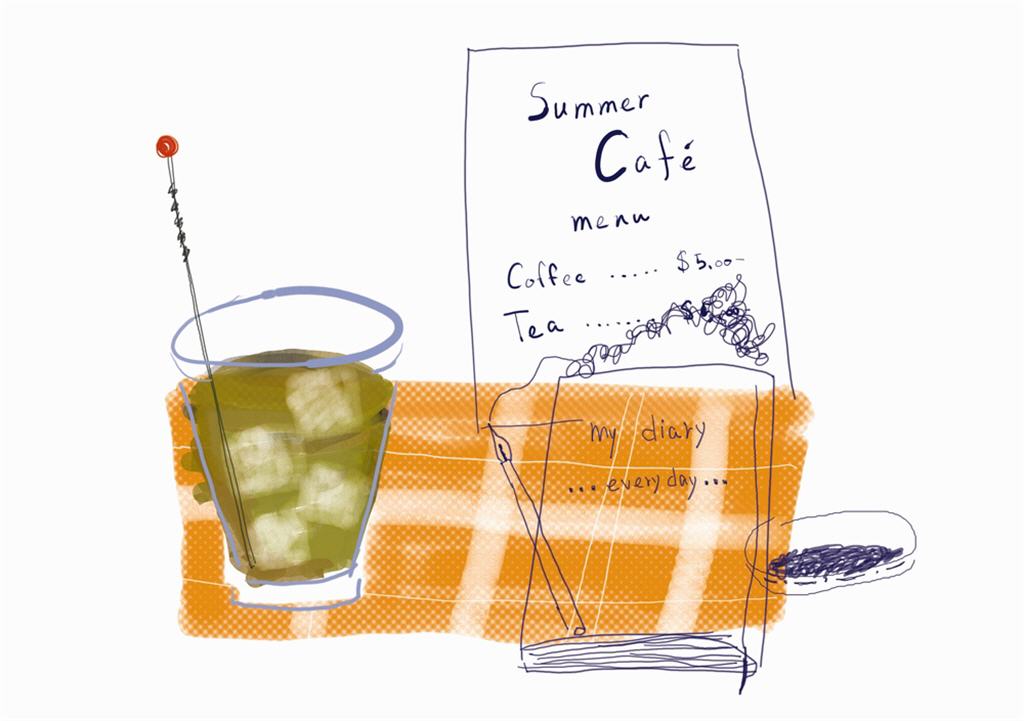 Summer
Café
menu
Coffee ..... $5.00-
Tea .......
my diary
...every day...